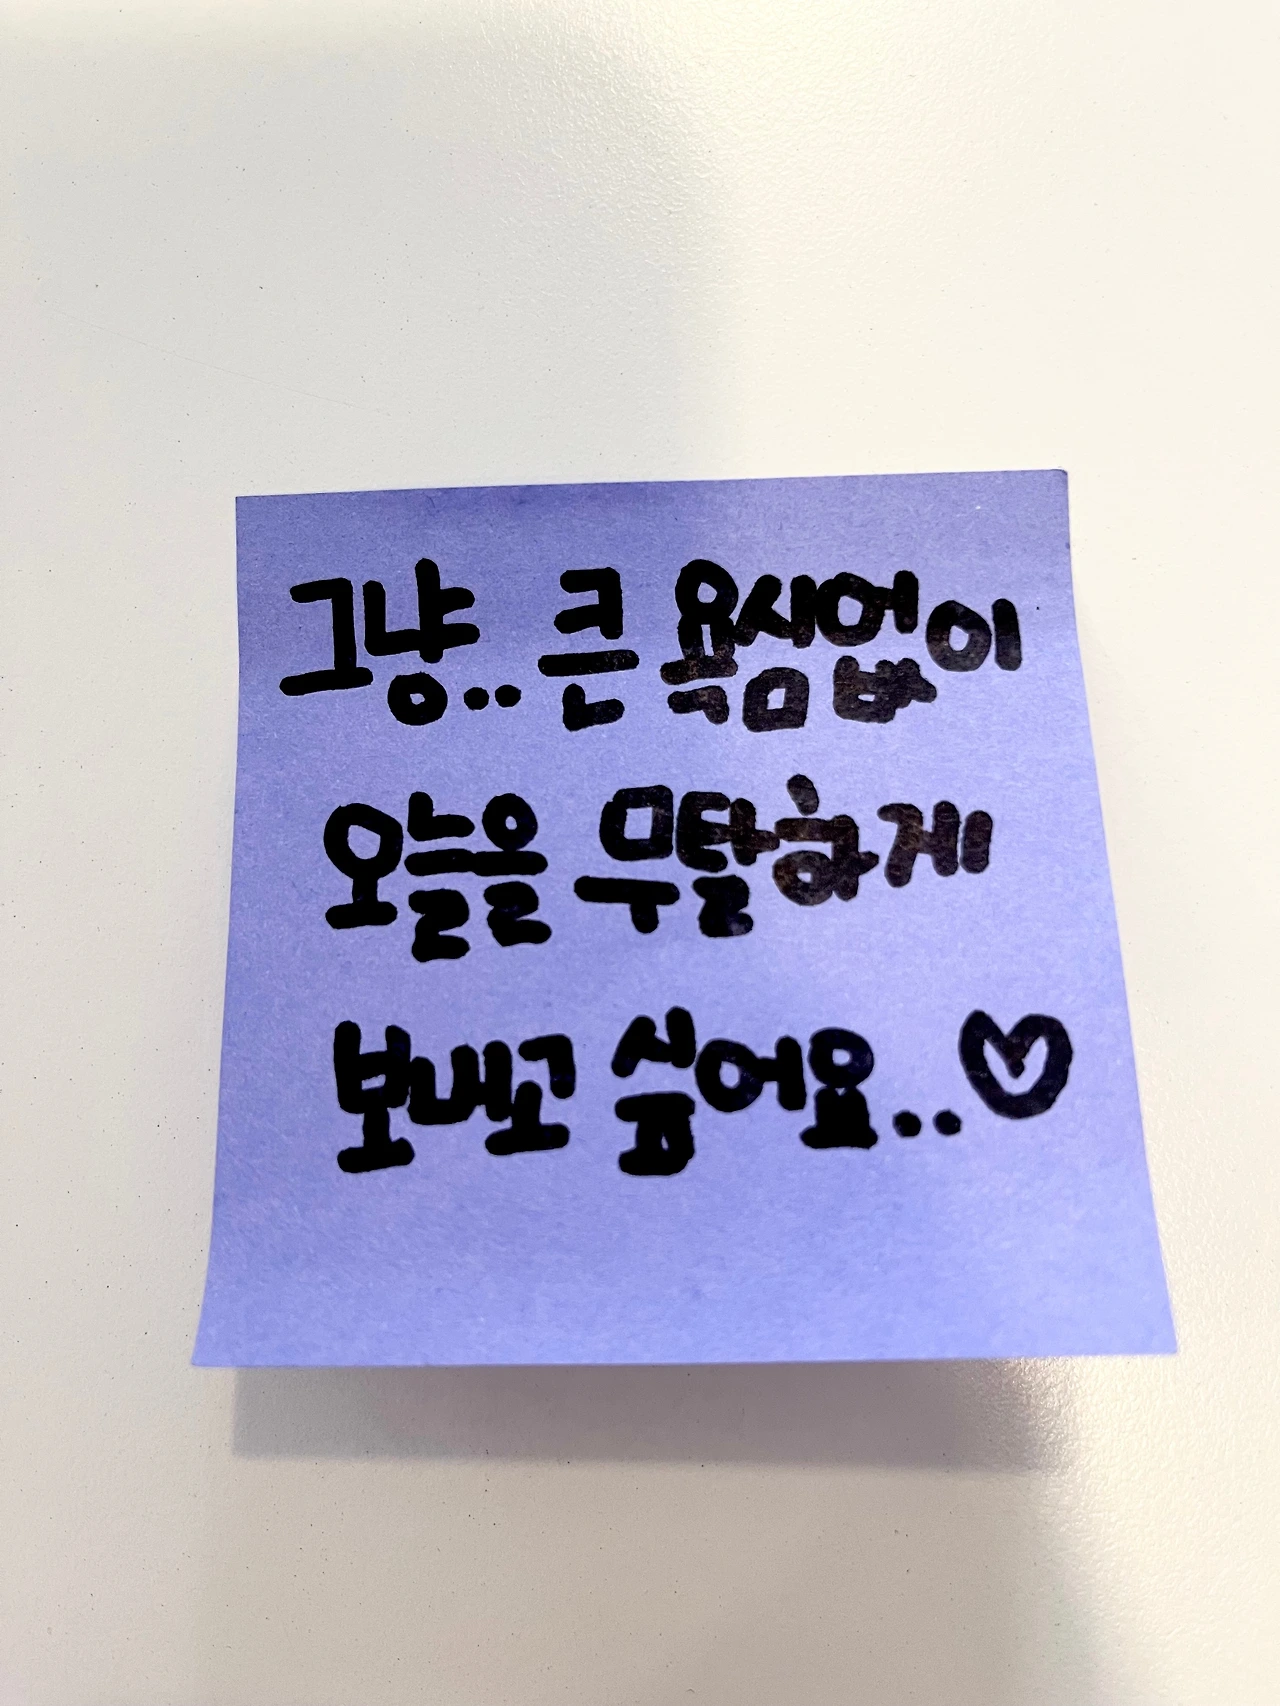 그냥.. 큰 욕심없이
오늘을 무탈하게
보내고 싶어요..♡